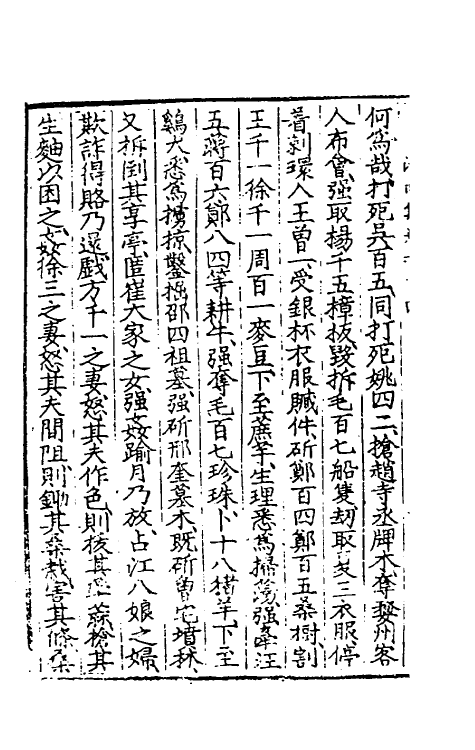 何爲哉打死吳百五同打死姚四二搶趙寺丞牌木奪婺州客
人布會强取楊千五樟板毀拆毛百七船隻刼取夏三衣服停
着剥環人王曽一受銀杯衣服贓件斫鄭百四鄭百五桑樹割
王千一徐千一周百一麥豆下至蔗芋生理悉爲掃蕩强牽汪
五蔣百六鄭八四等耕牛强奪毛百七珍珠卜十八猪羊下至
鷄犬悉爲擄掠鑿掘邵四祖墓强斫邢奎墓木既斫曽宅墳林
又拆倒其享亭匿崔大家之女强姦踰月乃放占江八娘之婦
欺詐得賂乃還戲方千一之妻怒其夫作色則核其 蒜搶其
生麯以困之姦徐三之妻怒其夫間阻則鋤其桑栽害其條桑